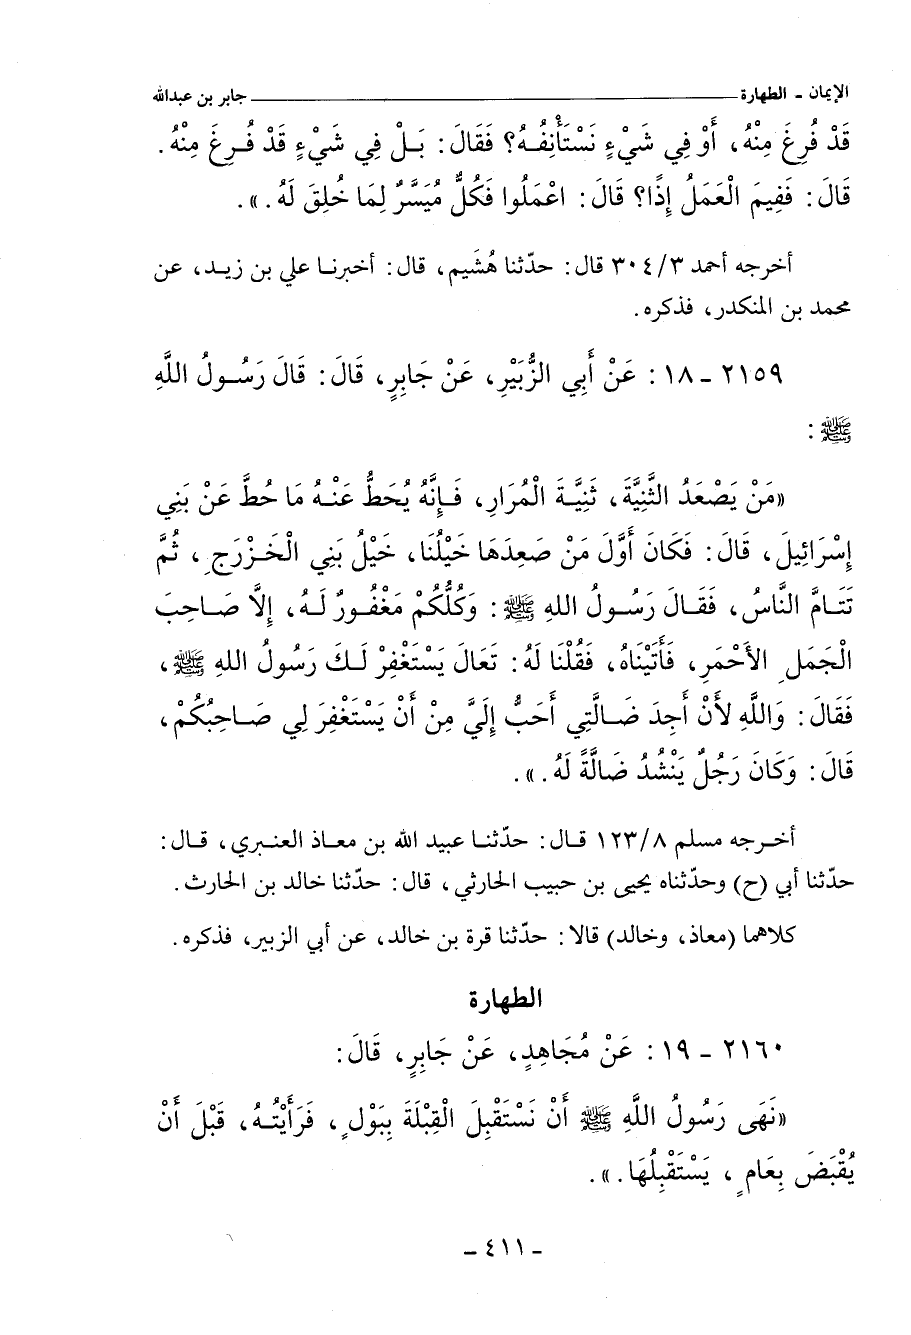 الإيمان - الطهارة ـــــــــــــــــــــــــ جابر بن عبدالله
قَدْ فُرِغَ مِنْهُ، أَوْ فِي شَيْءٍ نَسْتَأْنِفُهُ؟ فَقَالَ: بَلْ فِي شَيْءٍ قَدْ فُرِغَ مِنْهُ.
قَالَ: فَفِيمَ الْعَمَلُ إِذًا؟ قَالَ: اعْمَلُوا فَكُلٌّ مُيَسَّرٌ لِمَا خُلِقَ لَهُ.».
أخرجه أحمد ٣٠٤/٣ قال: حدّثنا هُشَيم، قال: أخبرنا علي بن زيد، عن
محمد بن المنكدر، فذكره.
٢١٥٩ - ١٨: عَنْ أَبِي الزُّبَيْرِ، عَنْ جَابِرٍ، قَالَ: قَالَ رَسُولُ اللَّهِ
ﷺ:
«مَنْ يَصْعَدُ الثَّنِيَّةَ، ثَنِيَّةَ الْمُرَارِ، فَإِنَّهُ يُحَطُّ عَنْهُ مَا حُطَّ عَنْ بَنِي
إِسْرَائِيلَ، قَالَ: فَكَانَ أَوَّلَ مَنْ صَعِدَهَا خَيْلُنَا، خَيْلُ بَنِي الْخَزْرَجِ، ثُمَّ
تَتَامَّ النَّاسُ، فَقَالَ رَسُولُ اللهِ ﷺ: وَكُلُّكُمْ مَغْفُورٌ لَهُ، إِلَّا صَاحِبَ
الْجَمَلِ الأَحْمَرِ، فَأَتَيْنَاهُ، فَقُلْنَا لَهُ: تَعَالَ يَسْتَغْفِرْ لَكَ رَسُولُ اللهِ ﷺ،
فَقَالَ: وَاللَّهِ لأَنْ أَجِدَ ضَالَّتِي أَحَبُّ إِلَيَّ مِنْ أَنْ يَسْتَغْفِرَ لِي صَاحِبُكُمْ،
قَالَ: وَكَانَ رَجُلٌ يَنْشُدُ ضَالَّةً لَهُ.».
أخرجه مسلم ١٢٣/٨ قال: حدّثنا عبيد الله بن معاذ العنبري، قال:
حدّثنا أبي (ح) وحدّثناه يحيى بن حبيب الحارثي، قال: حدّثنا خالد بن الحارث.
كلاهما (معاذ، وخالد) قالا: حدّثنا قرة بن خالد، عن أبي الزبير، فذكره.
الطهارة
٢١٦٠ - ١٩: عَنْ مُجَاهِدٍ، عَنْ جَابِرٍ، قَالَ:
«نَهَى رَسُولُ اللَّهِ ﷺ أَنْ نَسْتَقْبِلَ الْقِبْلَةَ بِبَوْلٍ، فَرَأَيْتُهُ، قَبْلَ أَنْ
يُقْبَضَ بِعَامٍ، يَسْتَقْبِلُهَا.».
- ٤١١ -